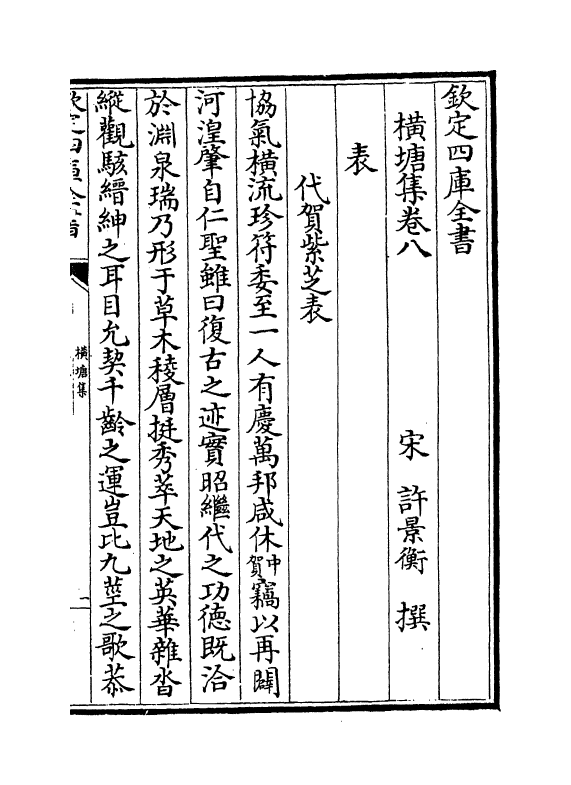 欽定四庫全書
橫塘集卷八
宋 許景衡 撰
表
代賀紫芝表
協氣橫流珍符委至一人有慶萬邦咸休中賀竊以再闢
河湟肇自仁聖雖曰復古之迹實昭繼代之功德既洽
於淵泉瑞乃形于草木稜層挺秀萃天地之英華雜沓
縱觀駭縉紳之耳目允契千齡之運豈比九莖之歌恭
欽定四庫全書
橫塘集
一